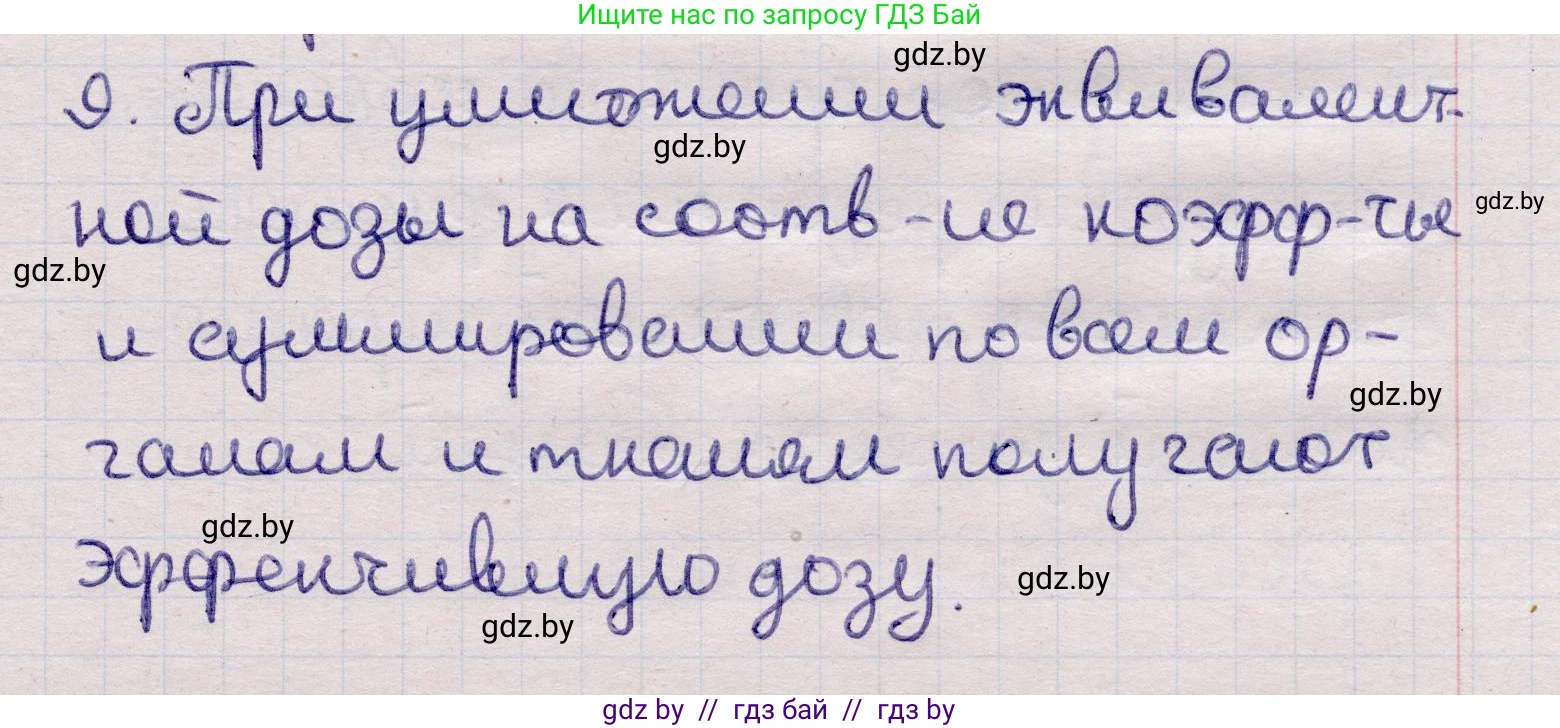 Ищите нас по запросу ГДЗ Бай
gdz.by
9. При умножении эквивалент-
gdz.by
ной дозы на соотв-ие коэфф-ты
gdz.by
gdz.by
и суммировании по всем ор-
gdz.by
ганам и тканям получают
gdz.by
эффективную дозу.
gdz.by
gdz.by
gdz by // гдз бай // гдз by